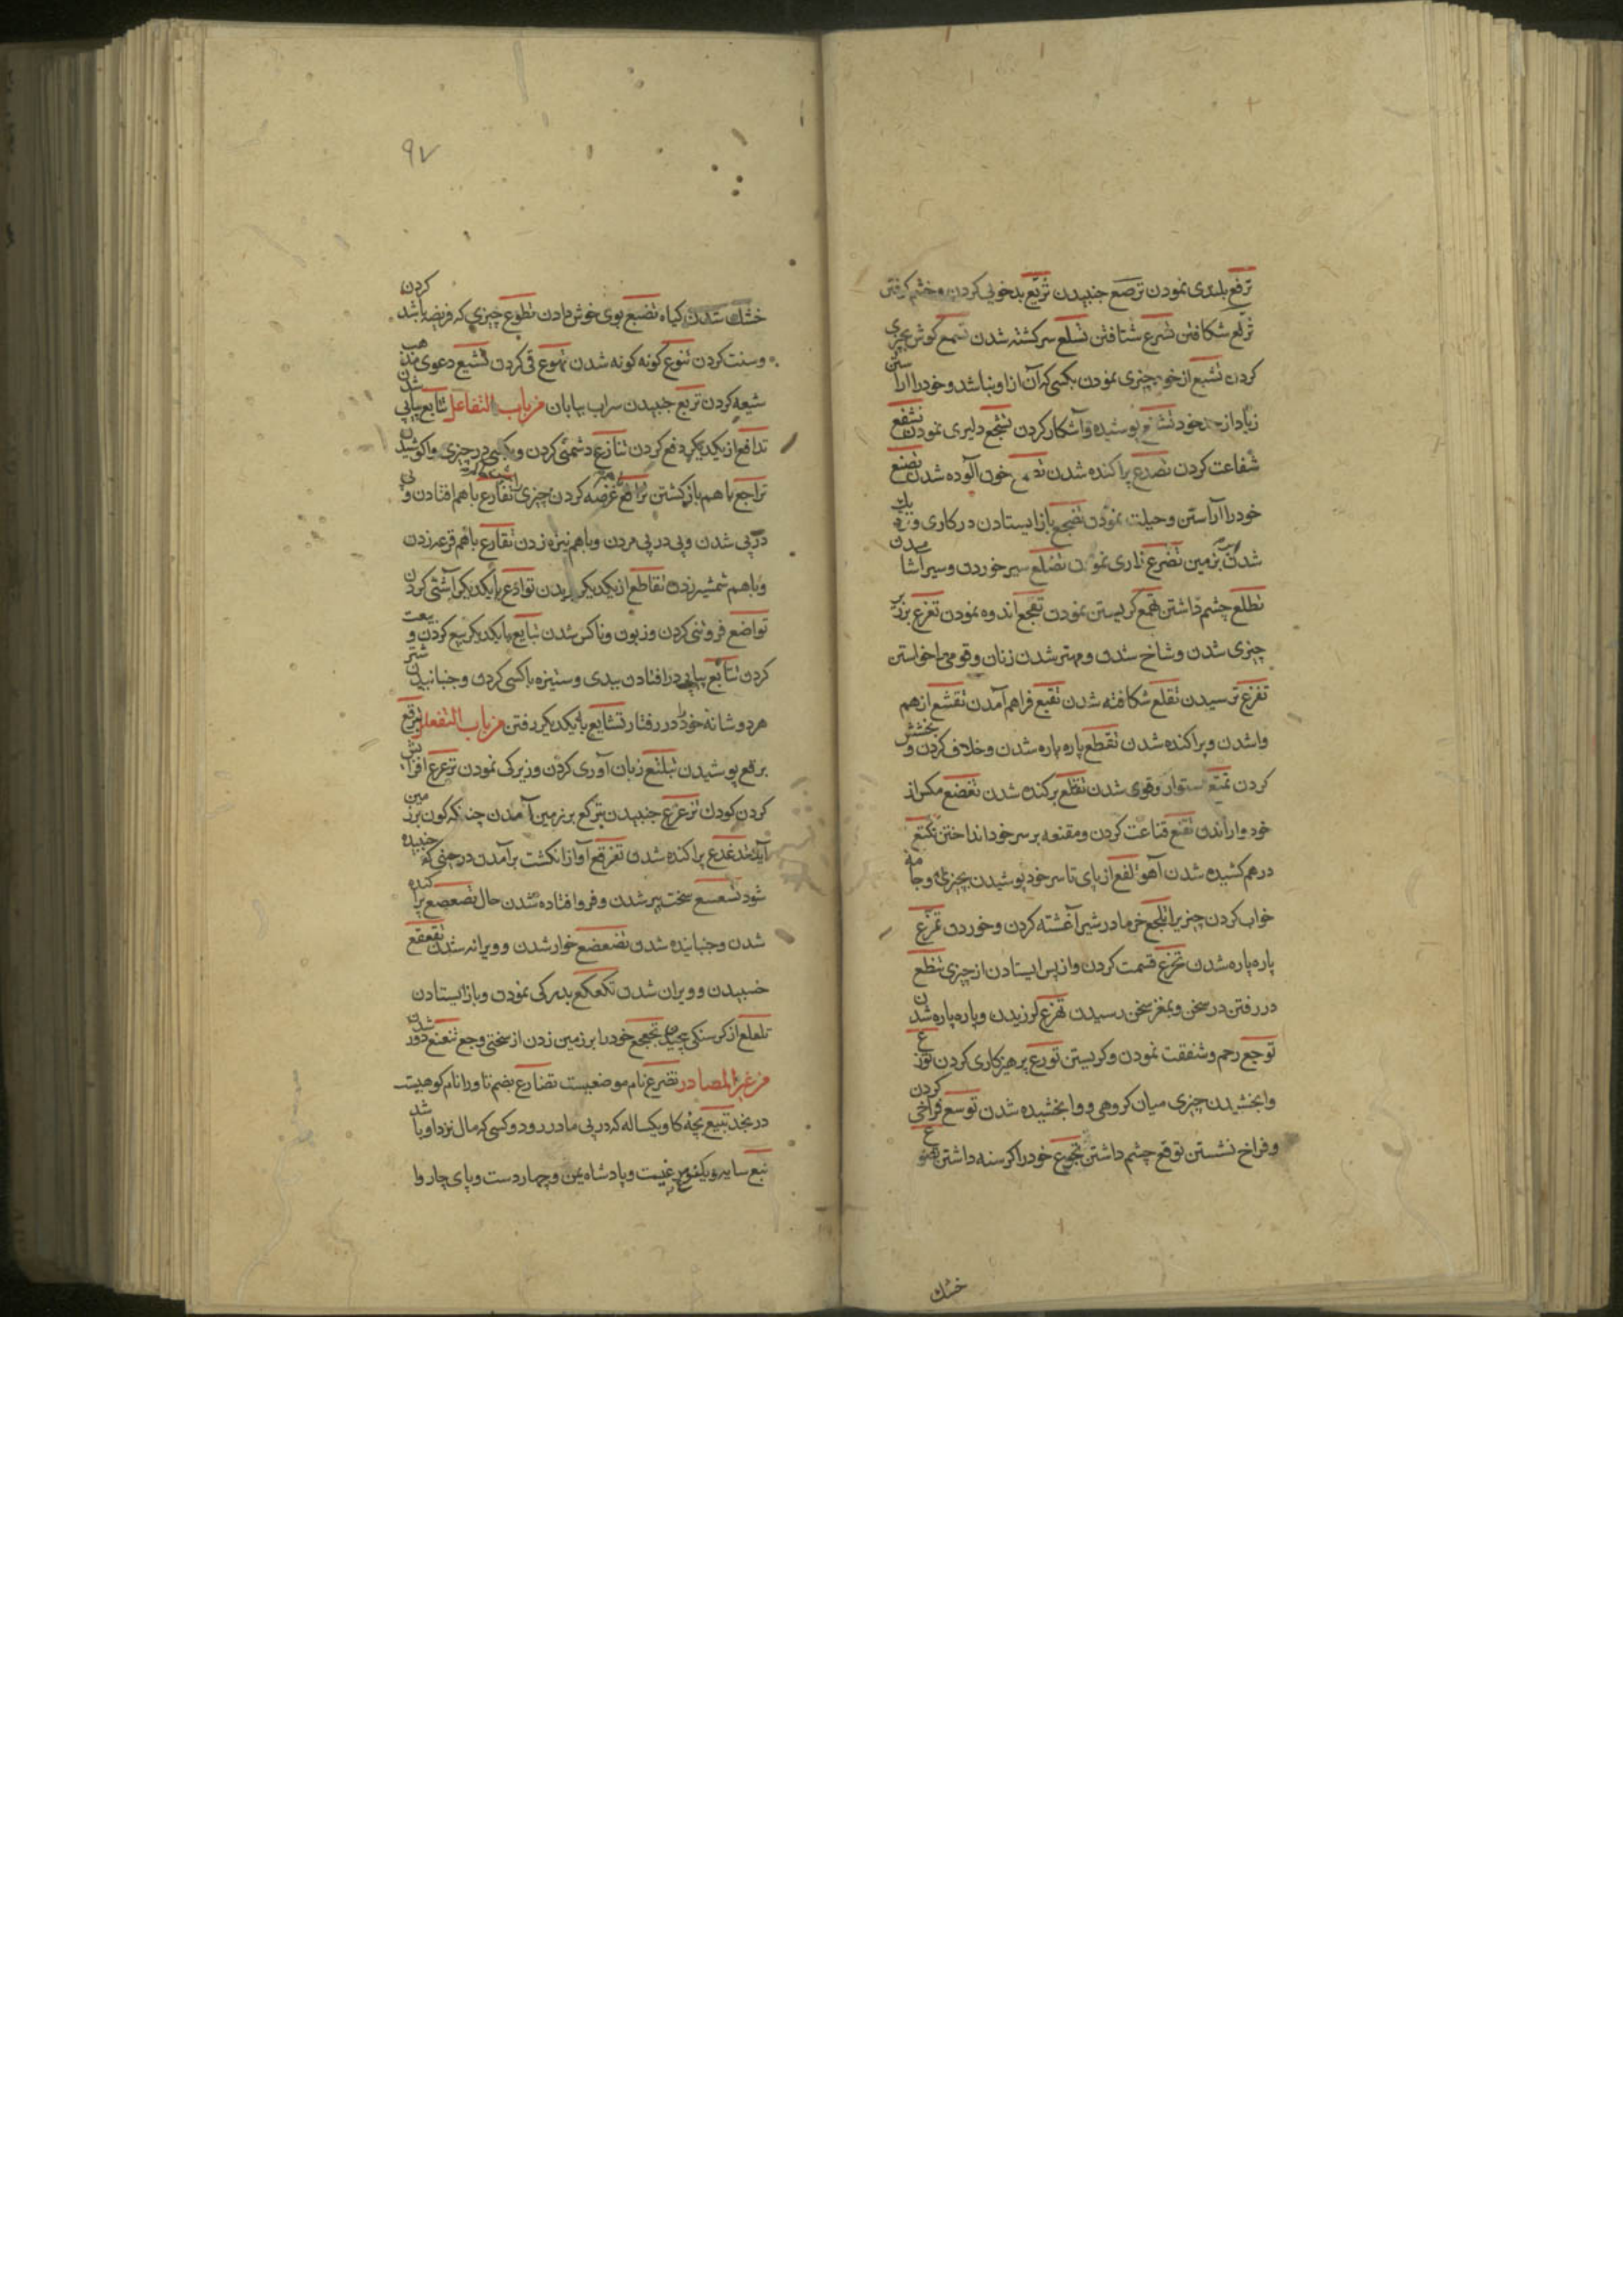 ترفع بلندی نمودن ترصع جنبیدن تربع بدخویی کردن و خشم گرفتن
تزلع شکافتن تسرع شتافتن تسلع سرکشته شدن تسمع کوش بچیزی
کردن تشبع از خود چیزی نمودن بکسی که آن از او نباشد و خود را آراستن
زیاد از خود پوشیده و آشکار کردن تشجع دلیری نمودن تشفع
شفاعت کردن تصدع پراکنده شدن خون آلوده شدن تصنع
خود را آراستن و حیلت نمودن تضجع باز ایستادن در کاری و
شدن بزمین تضرع زاری نمودن تضلع سیر خوردن و سیر آشامیدن
تطلع چشم داشتن کریستن نمودن تفجع اندوه نمودن تفرع بزرگ بر
چیزی شدن و شاخ شدن و مهتر شدن زنان و قومی را خواستن
تفزع ترسیدن تقلع شکافته شدن تقبع فراهم آمدن تقشع از هم
واشدن و پراکنده شدن تقطع پاره پاره شدن و خلاف کردن و بخشش
کردن تمتع استوار و قوی شدن تقلع برکنده شدن مکس از
خود واراندن تقنع قناعت کردن و مقنعه بر سر خود انداختن تکنع
در هم کشیده شدن آهو تلفع از پای تا سر خود پوشیدن بچیزی و جامه
خواب کردن چیزیرا تمجع خرما در شیر آغشته کردن و خوردن تمزع
پاره پاره شدن تخزع قسمت کردن و از پس ایستادن از چیزی تنطع
در رفتن در سخن و بمغز سخن رسیدن تهزع لرزیدن و پاره پاره شدن
توجع رحم و شفقت نمودن و کریستن تورع پرهیزکاری کردن توزع
وابخشیدن چیزی میان کروهی و وابخشیده شدن توسع فراخی کردن
و فراخ نشستن توقع چشم داشتن تجوع خود را کرسنه داشتن
خشك
۹۷
خشك شدن کیاه تضبع بوی خوش دادن تطوع چیزی که فریضه باشد کردن
و سنت کردن تنوع کونه کونه شدن تهوع قی کردن تشیع دعوی مذهب
شیعه کردن تریع جنبیدن سراب بیابان من باب التفاعل تتابع پیاپی شدن
تدافع از یکدیکر دفع کردن تنازع دشمنی کردن و در چیزی واکوشیدن
تراجع با هم باز کشتن ترافع عرضه کردن چیزی تقارع با هم افتادن و
در پی شدن و پی در پی مردن و با هم نیزه زدن تقارع با هم قرعه زدن
و با هم شمشیر زدن تقاطع از یکدیکر بریدن توادع با یکدیکر آشتی کردن
تواضع فروتنی کردن و زبون و ناکس شدن تبایع با یکدیکر بیع کردن و بیعت
کردن تتایع پیاپی در افتادن ببدی و ستیزه با کسی کردن و جنبانیدن شتر
هر دو شانه خود را در رفتار تشایع با یکدیکر رفتن من باب التفعلل تبرقع
برقع پوشیدن تبلتع زبان آوری کردن و زیرکی نمودن ترعرع افزایش
کردن کودك تزعزع جنبیدن تبرکع بر زمین آمدن چنانکه کون بر زمین
آید تذعذع پراکنده شدن تفرقع آواز انکشت برآمدن در حینی که خمیده
شود تسعسع سخت پیر شدن و فرو افتاده شدن حال تصعصع پراکنده
شدن و جنبانیده شدن تضعضع خوار شدن و ویرانه شدن تقعقع
خسبیدن و ویران شدن تکعکع بددلی نمودن و باز ایستادن
تلعلع از کرسنکی پیچیدن تجعجع خود را بر زمین زدن از سختی وجع تنعنع دور شدن
من غیر المصادر تضرع نام موضعیست تضارع بضم تا و را نام کوهیست
در نجد تبیع بچه کاو یکساله که در پی مادر رود و کسی که مال نزد او باشد
تبع سایه و پادشاه یمن و چهار دست و پای چاروا